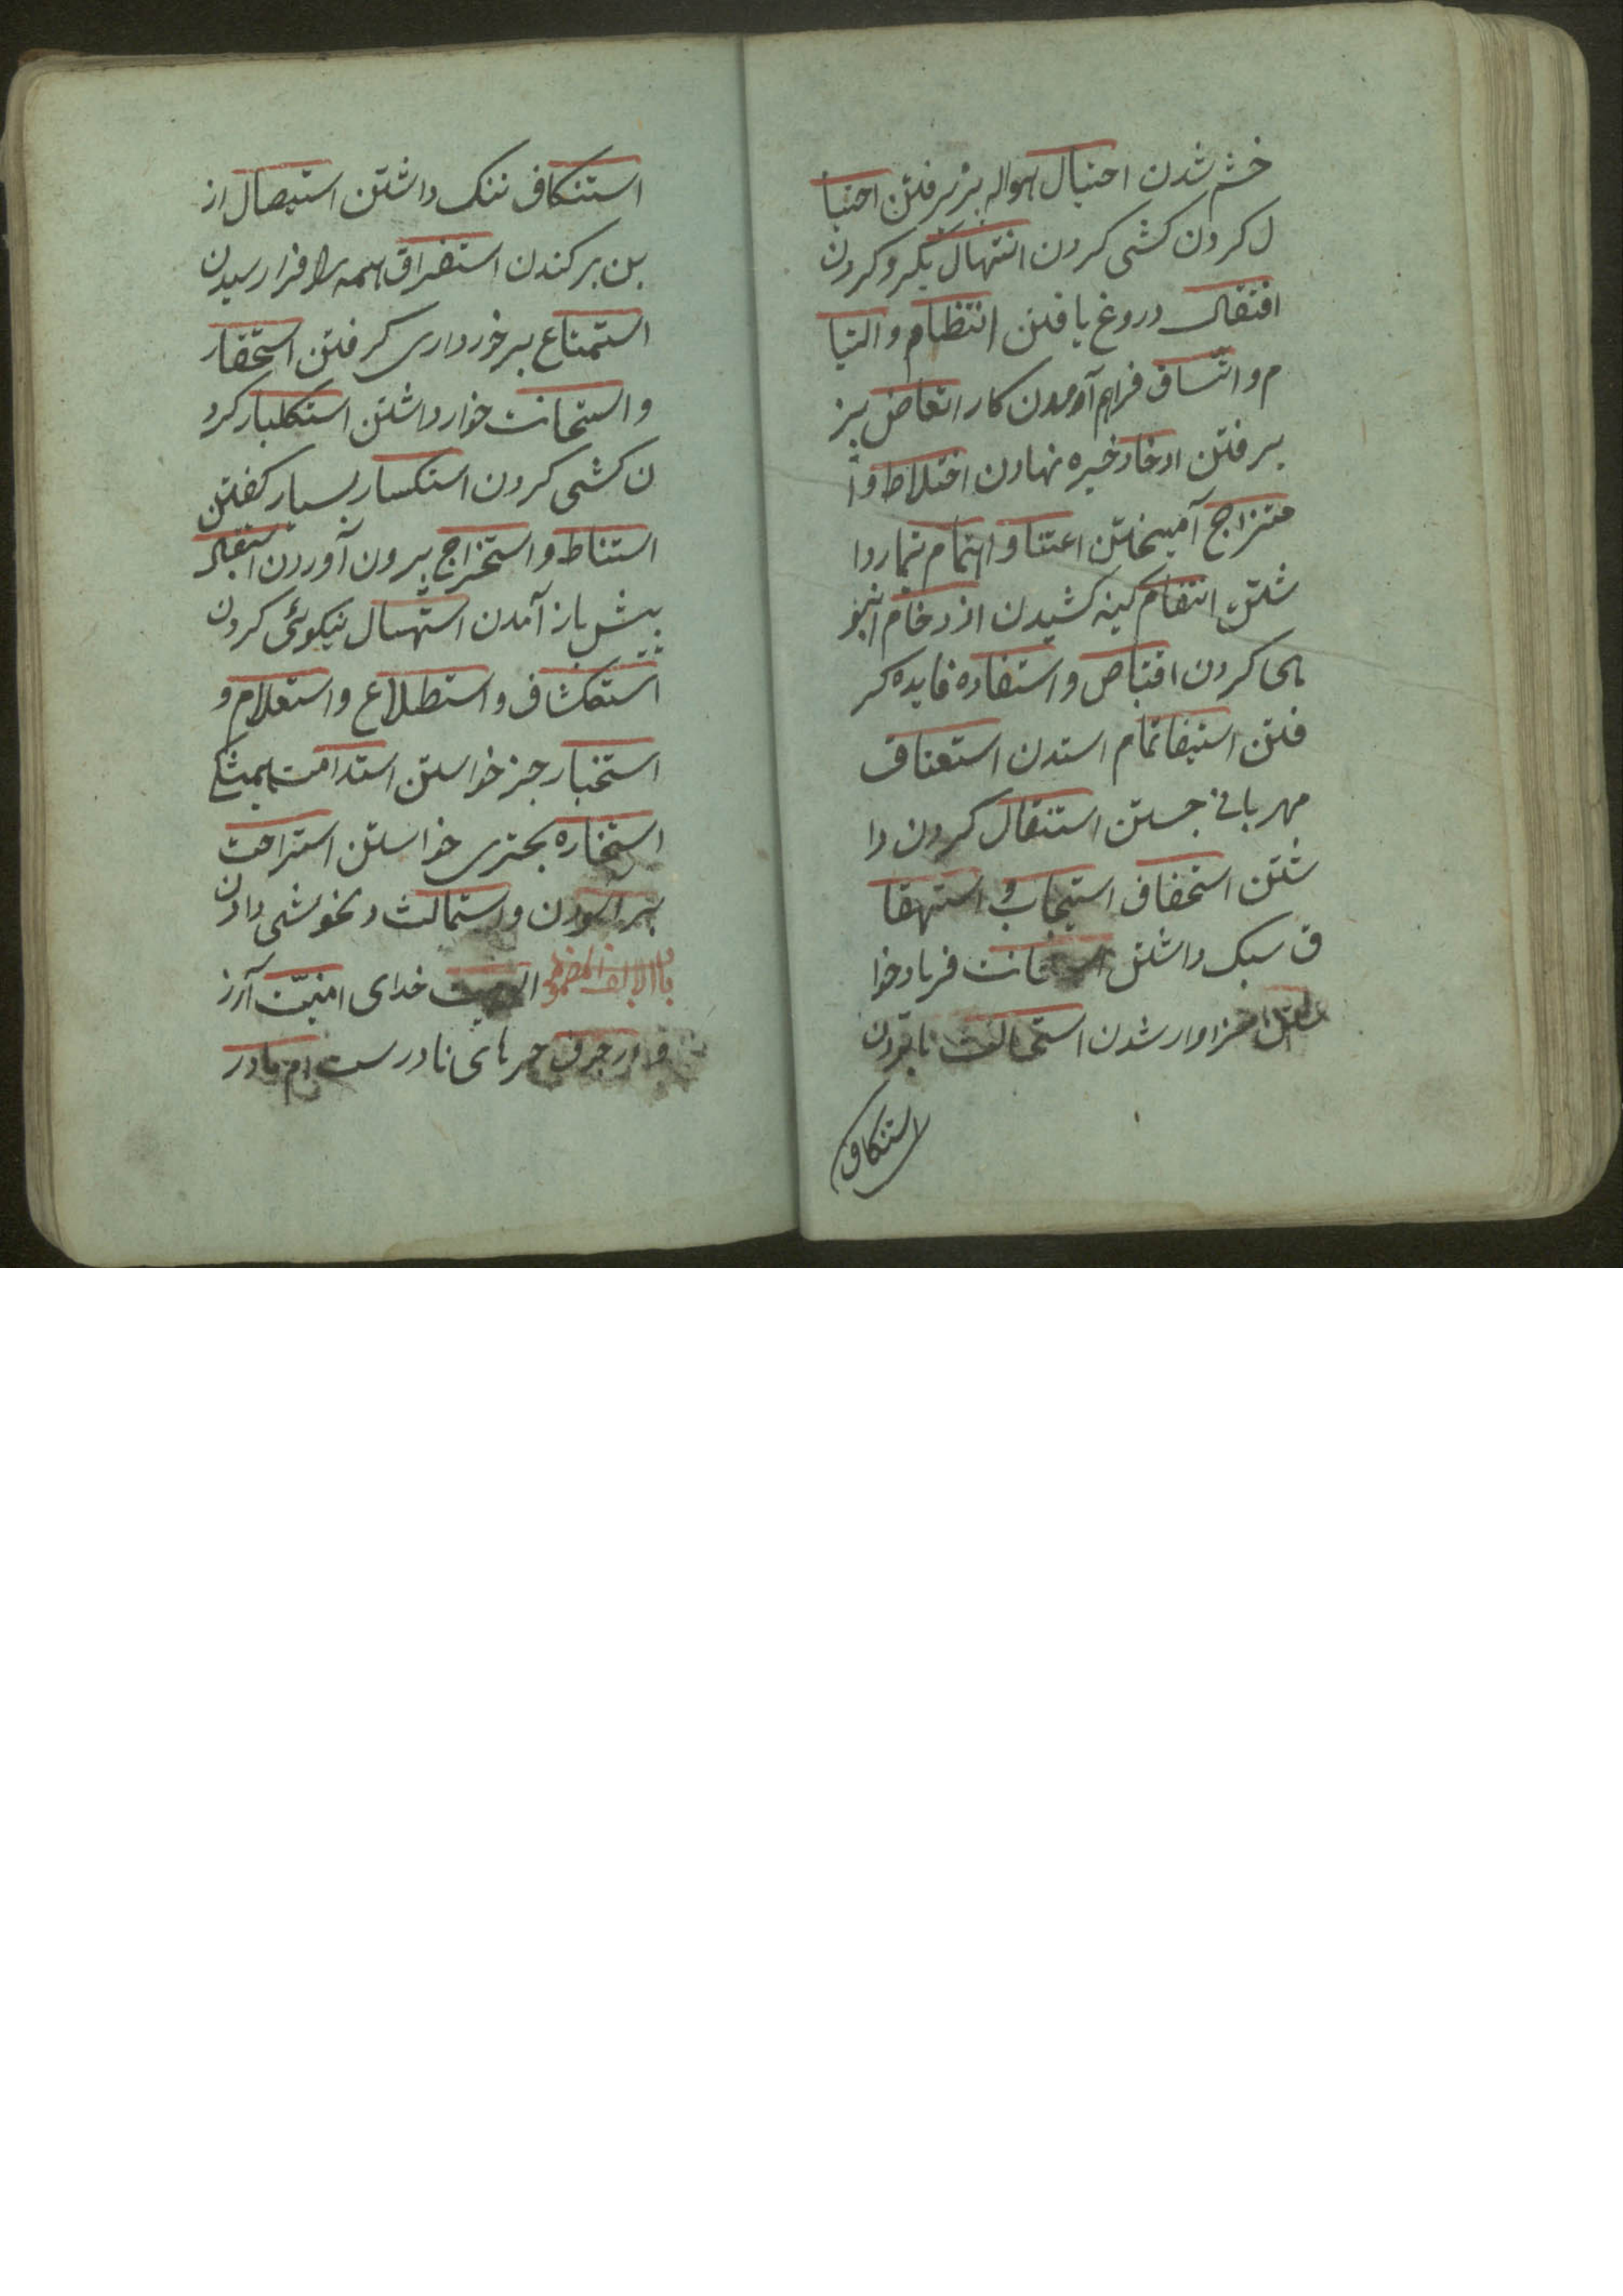 خشم شدن احتیال هواله پزیرفتن احتیا
ل کردن کشی کردن انتهال بکرو کردن
افتقال دروغ بافتن انتظام و التیا
م و اتساق فراهم آومدن کار اتعاض پز
یرفتن ادخار ذخیره نهادن اختلاط و ا
متزاج آمیختن اعتنا و اهتمام تیمار دا
شتن انتقام کینه کشیدن ازدحام انبو
هی کردن اقتباص و استفاده فایده کر
فتن استیفا تمام استدن استعناف
مهربانی جستن استنقال کردن دا
شتن استخفاف استیجاب و استهقا
ق سبک داشتن فریاد خوا
سزاوار شدن استحالت
استنکاف
استنکاف ننک داشتن استیصال از
بن برکندن استغراق همه را فرا رسیدن
استمتاع برخورداری کرفتن استحقار
و استحانت خوار داشتن استکلبار کرد
ن کشی کردن استکسار بسیار کفتن
استناط و استخراج بیرون آوردن استقبال
پیش باز آمدن استهسال نیکوئی کردن
استکشاف و استطلاع و استعلام و
استخبار خبر خواستن استدامت همیشکی
استخاره بحتری خواستن استراحت
بر اسودن و استمالت دلخوشی دادن
باالالف المضموم الوهیت خدای امنیّت آرز
و ارجوف خبر های نادرست ام مادر